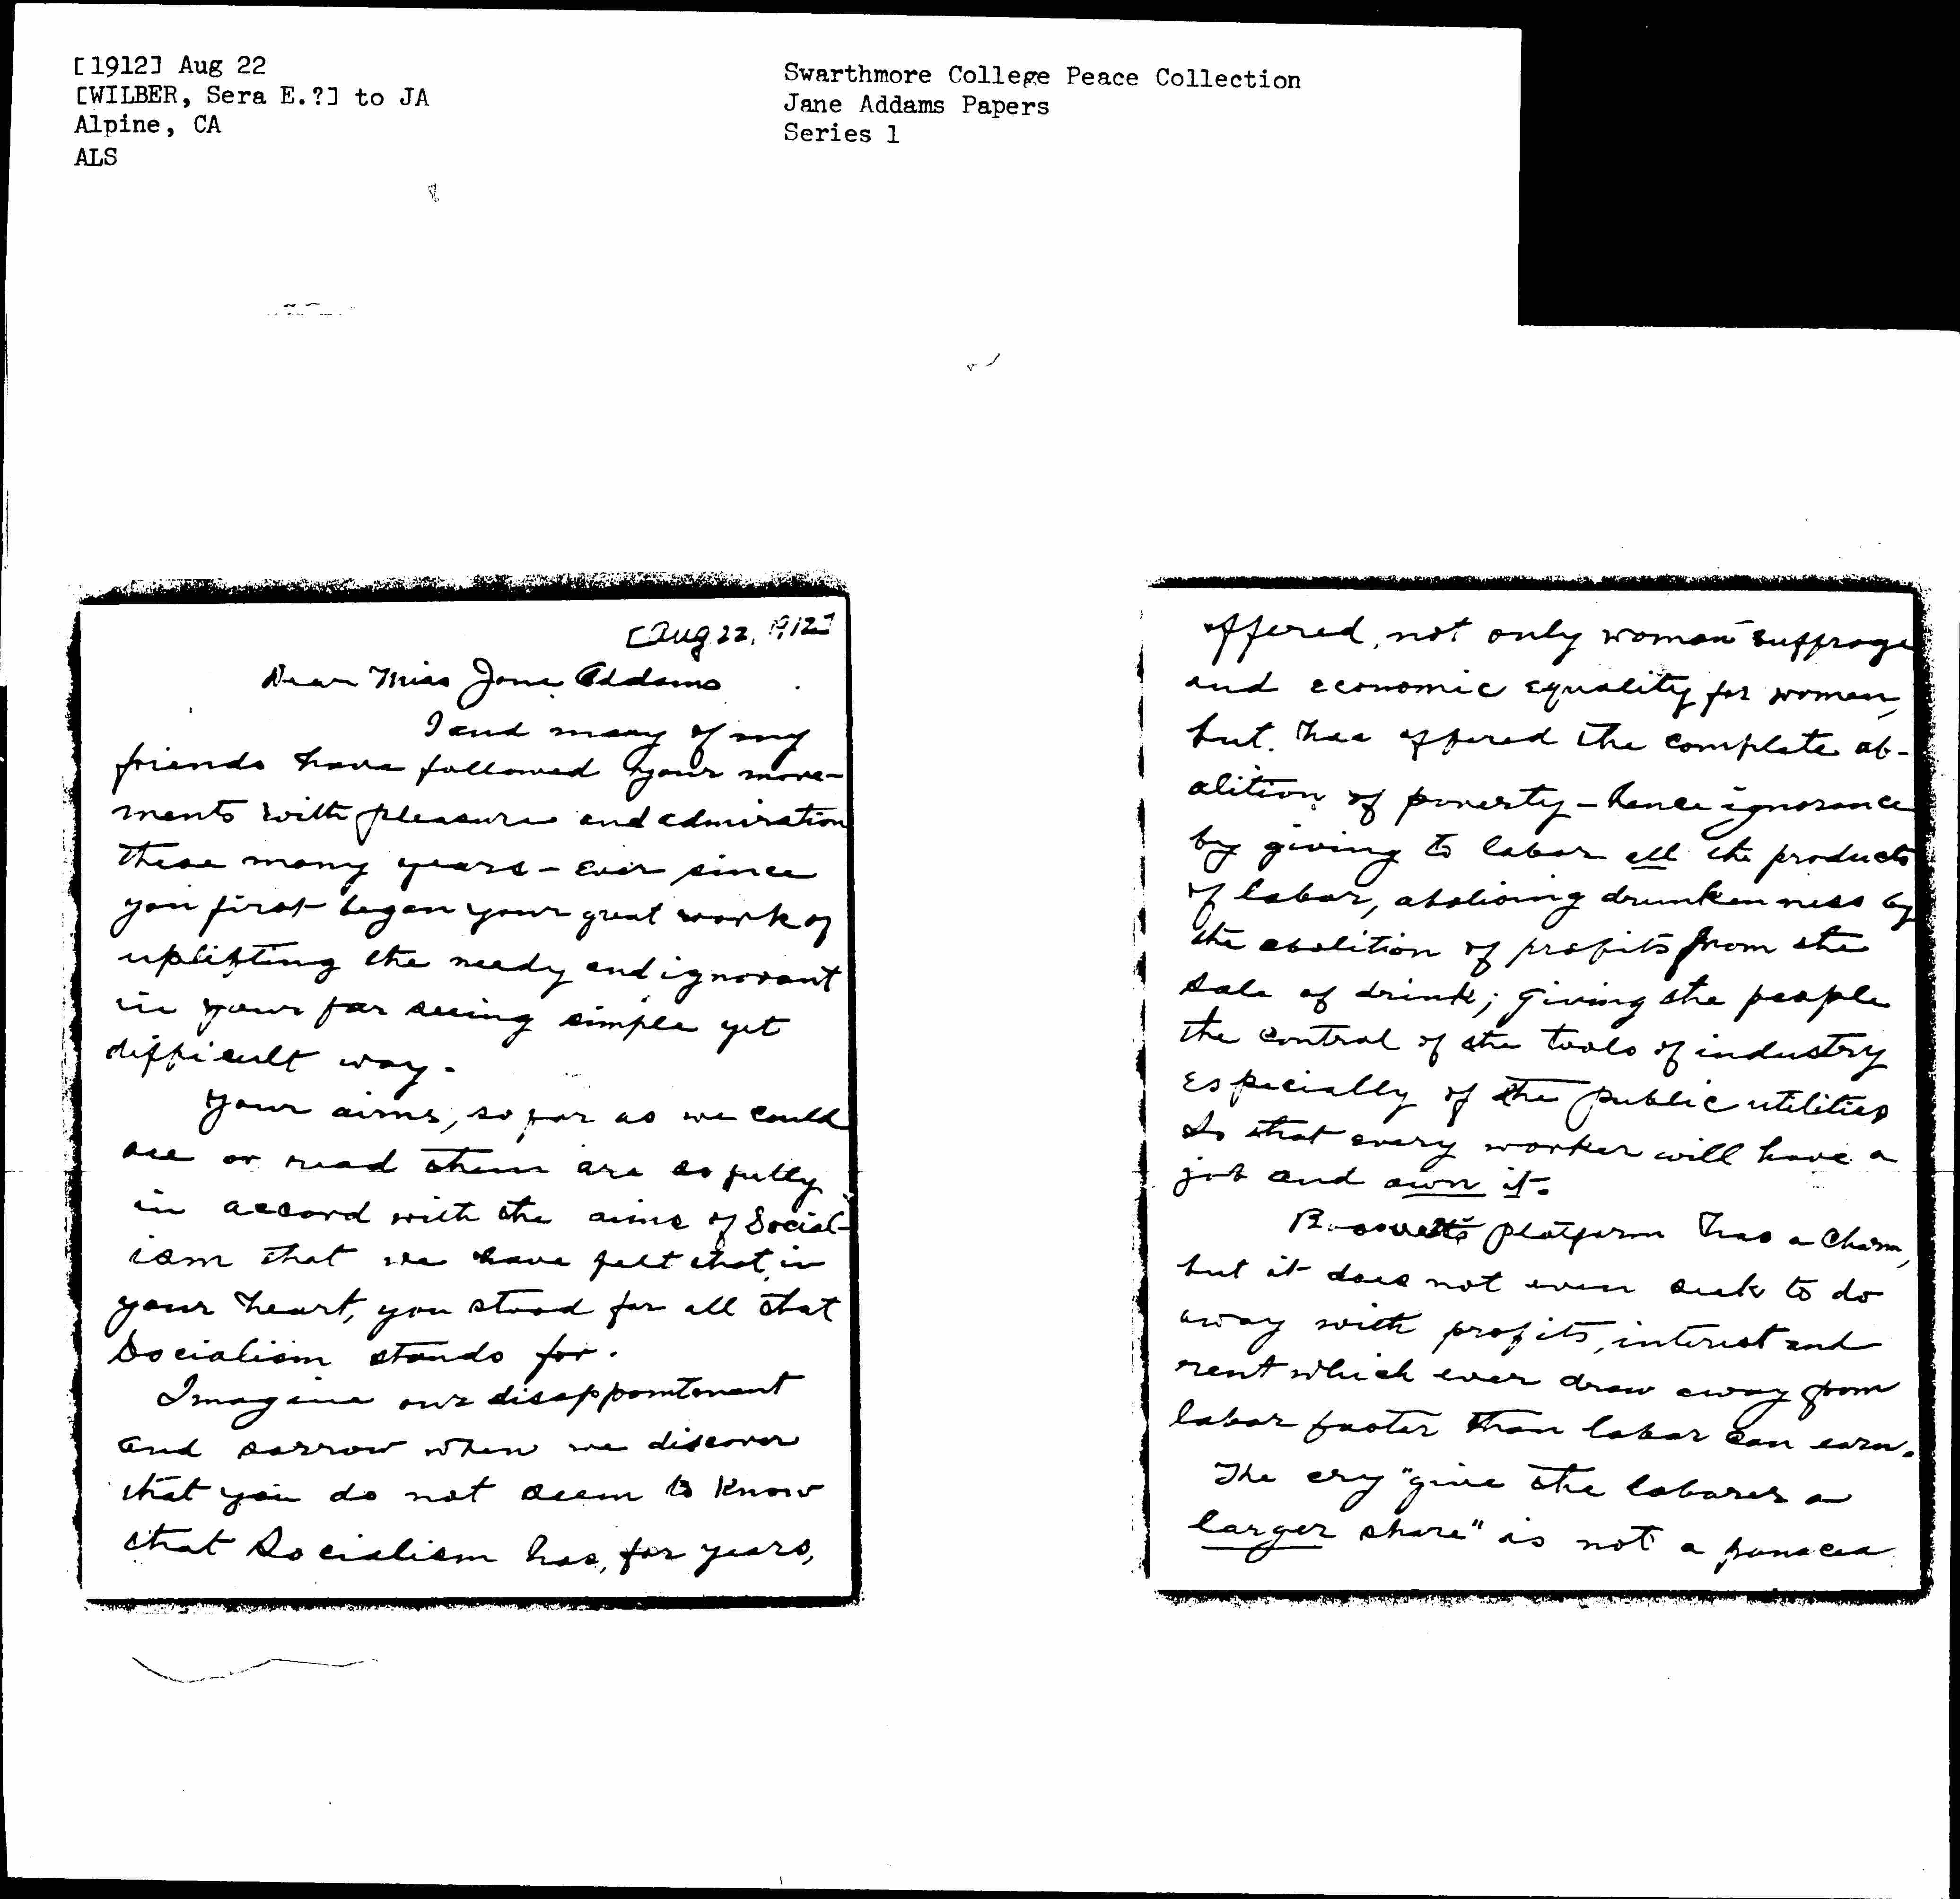 [1912] Aug 22
[WILBER, Sera E.?] to JA
Alpine, CA
ALS
Swarthmore College Peace Collection
Jane Addams Papers
Series 1
[Aug 22, 1912]
Dear Miss Jane Addams
I and many of my
friends have followed your move-
ments with pleasure and admiration
these many years - ever since
you first began your great work of
uplifting the needy and ignorant
in your far seeing simple yet
difficult way.
Your aims, so far as we could
see or read them are so fully
in accord with the aims of Social-
ism that we have felt that, in
your heart, you stood for all that
Socialism stands for.
Imagine our disappointment
and sorrow when we discover
that you do not seem to know
that Socialism has, for years,
offered, not only woman suffrage
and economic equality for women,
but has offered the complete ab-
olition of poverty - hence ignorance
by giving to labor all the products
of labor, abolising drunkenness by
the abolition of profits from the
sale of drink; giving the people
the control of the tools of industry
especially of the public utilities
so that every worker will have a
job and own it.
Roosvelt's platform has a charm,
but it does not even seek to do
away with profits, interest and
rent which ever draw away from
labor faster than labor can earn.
The cry "give the laborer a
larger share" is not a panacea